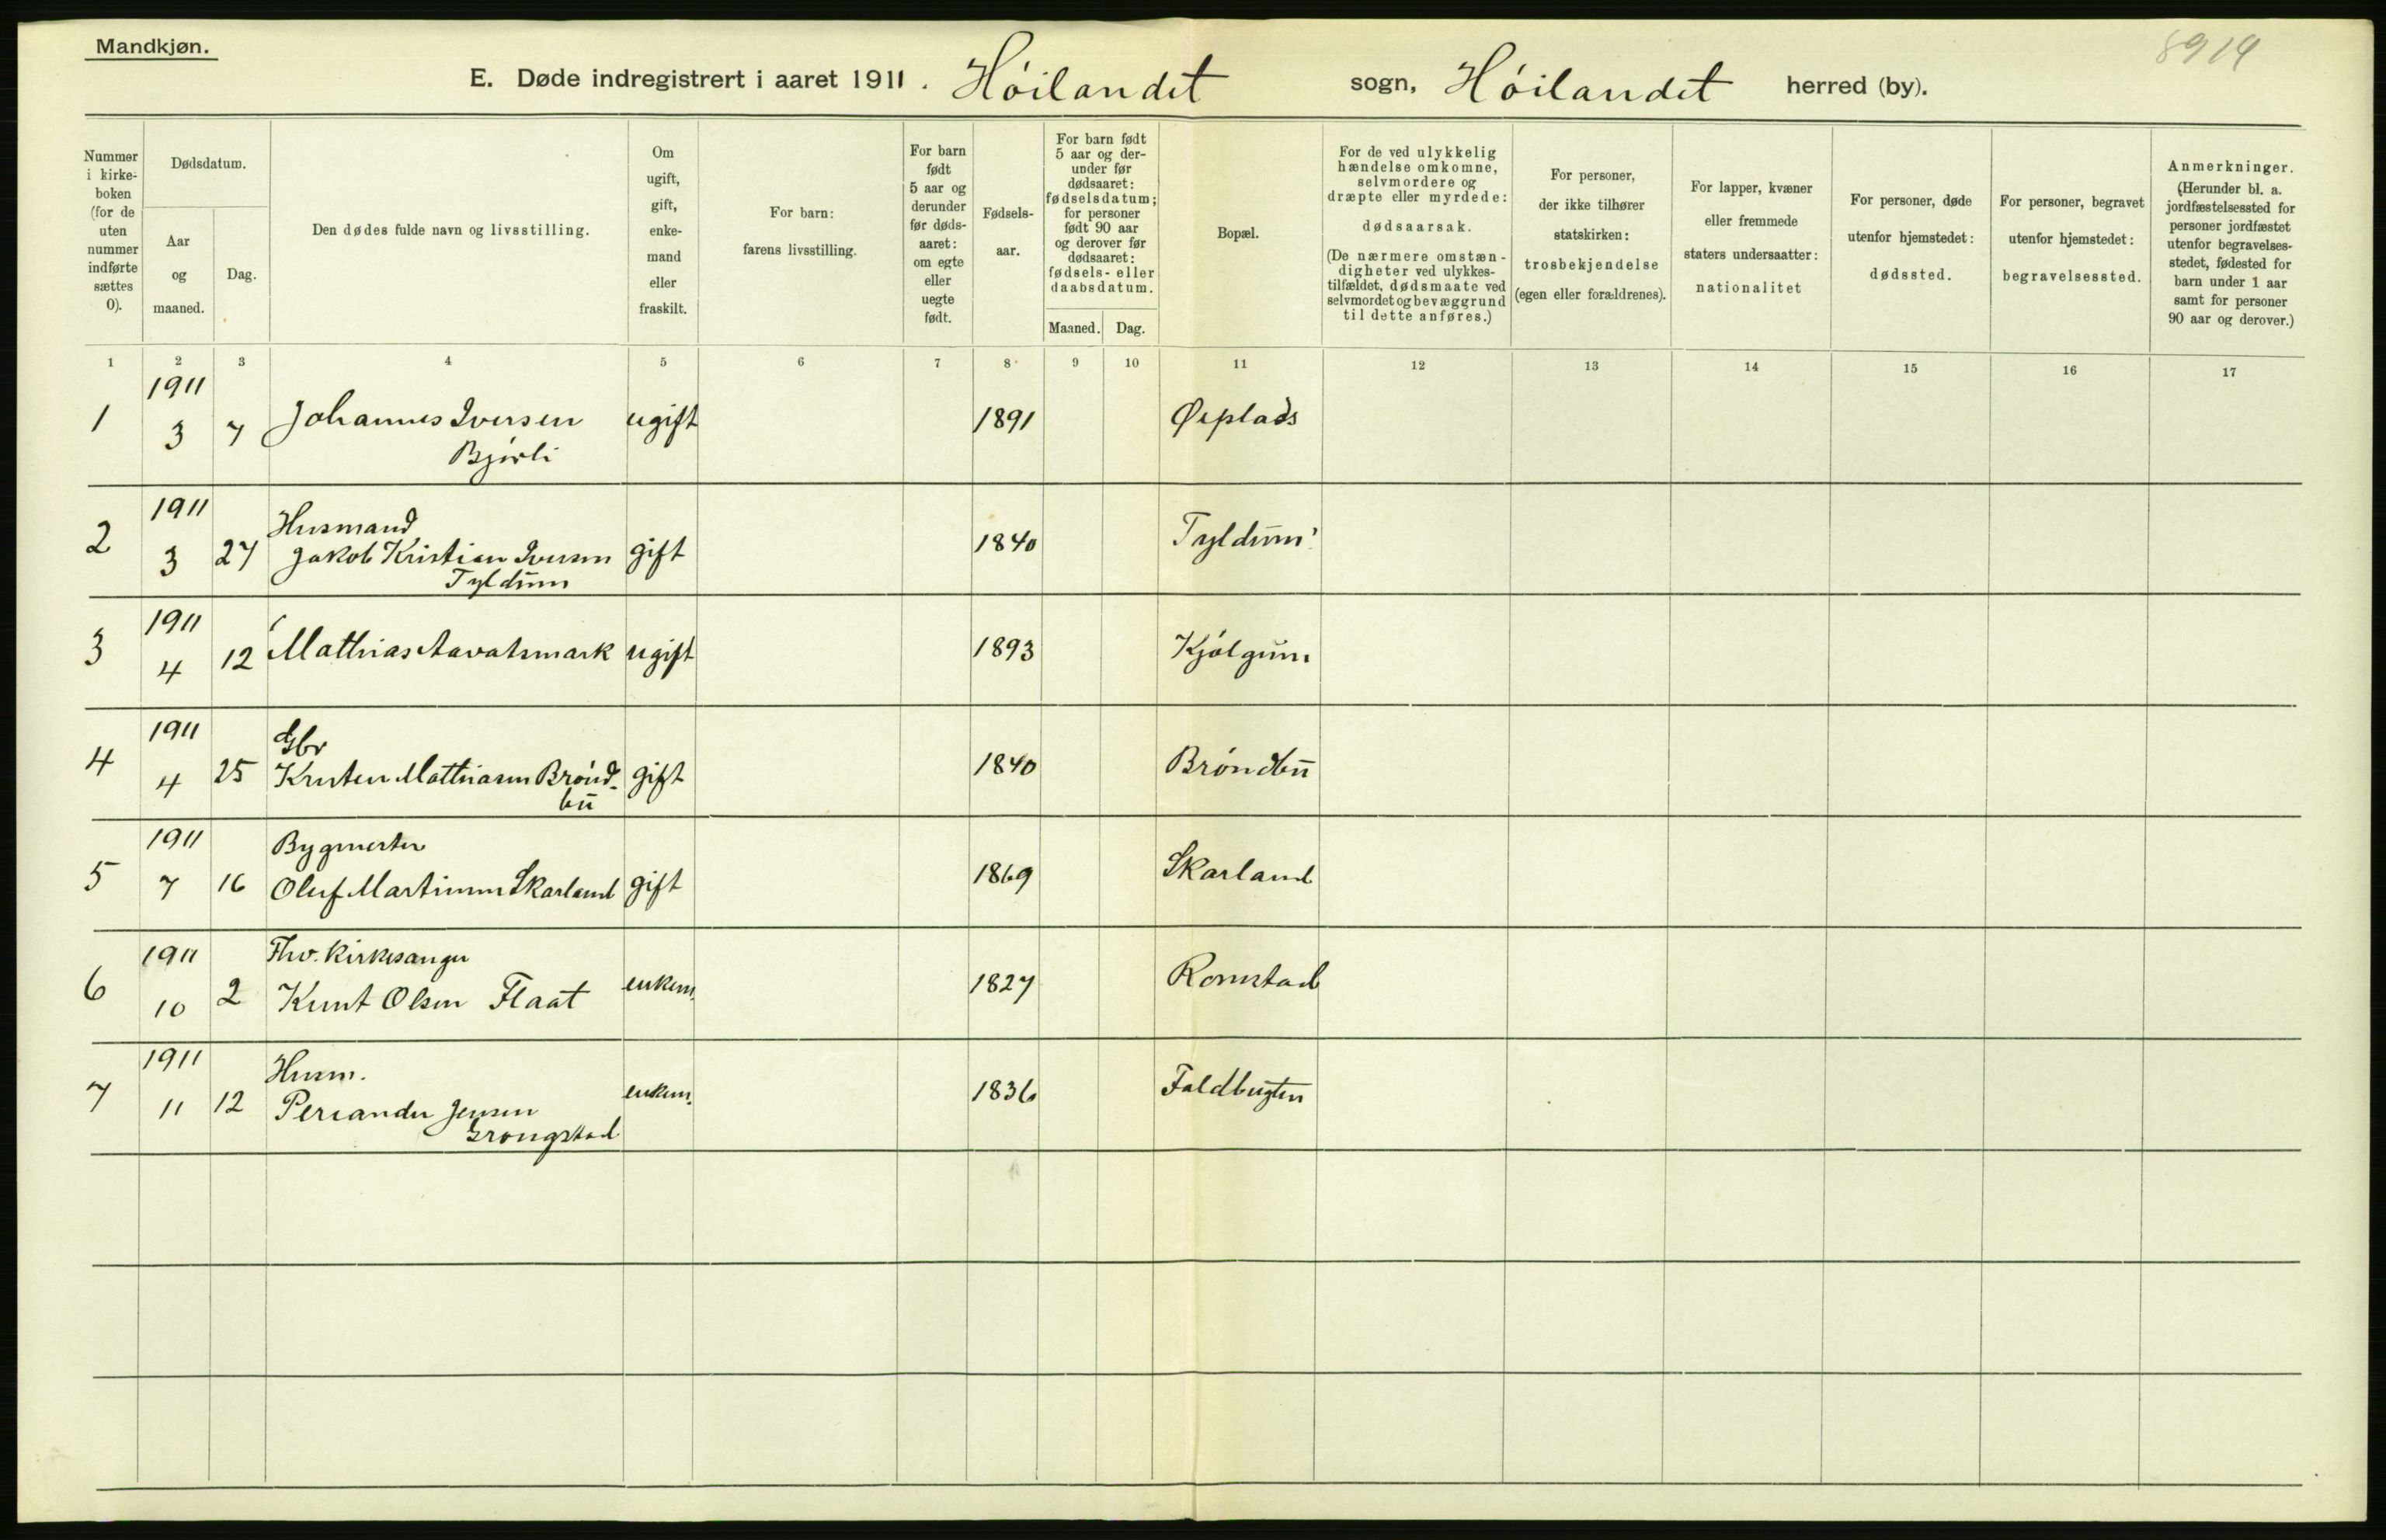 Mandkjøn.
8914
E. Døde indregistrert i aaret 1911. Høilandet sogn, Høilandet herred (by).
Nummer i kirke-boken (for de uten nummer indførte sættes 0).
Dødsdatum.
Aar og maaned.
Dag.
Den dødes fulde navn og livsstilling.
Om ugift, gift, enke-mand eller fraskilt.
For barn: farens livsstilling.
For barn født 5 aar og derunder før døds-aaret: om egte eller uegte født.
Fødsels-aar.
For barn født 5 aar og der-under før dødsaaret: fødselsdatum; for personer født 90 aar og derover før dødsaaret: fødsels- eller daabsdatum.
Maaned. Dag.
Bopæl.
For de ved ulykkelig hændelse omkomne, selvmordere og dræpte eller myrdede: dødsaarsak. (De nærmere omstæn-digheter ved ulykkes-tilfældet, dødsmaate ved selvmordet og bevæggrund til dette anføres.)
For personer, der ikke tilhører statskirken: trosbekjendelse (egen eller forældrenes).
For lapper, kvæner eller fremmede staters undersaatter: nationalitet
For personer, døde utenfor hjemstedet: dødssted.
For personer, begravet utenfor hjemstedet: begravelsessted.
Anmerkninger. (Herunder bl. a. jordfæstelsessted for personer jordfæstet utenfor begravelses-stedet, fødested for barn under 1 aar samt for personer 90 aar og derover.)
1 2 3 4 5 6 7 8 9 10 11 12 13 14 15 16 17
1911
1 3 7 Johannes Iversen ugift 1891 Øiplads
Bjørli
1911
Husmand
2 3 27 Jakob Kristian Iversen gift 1840 Tyldum
Tyldum
1911
3 4 12 Mathias Aavatsmark ugift 1893 Kjølgum
1911
Gbr
4 4 25 Kristen Mathiasen Brønd- gift 1840 Brøndbu
bu
1911
Bygmester
5 7 16 Oluf Martinsen Skarland gift 1869 Skarland
1911
Fhv. Kirkesanger
6 10 2 Knut Olsen Flaat enkem. 1827 Romstad
1911
Husm.
7 11 12 Periander Jensen enkem. 1836 Foldbugten
Grongstad